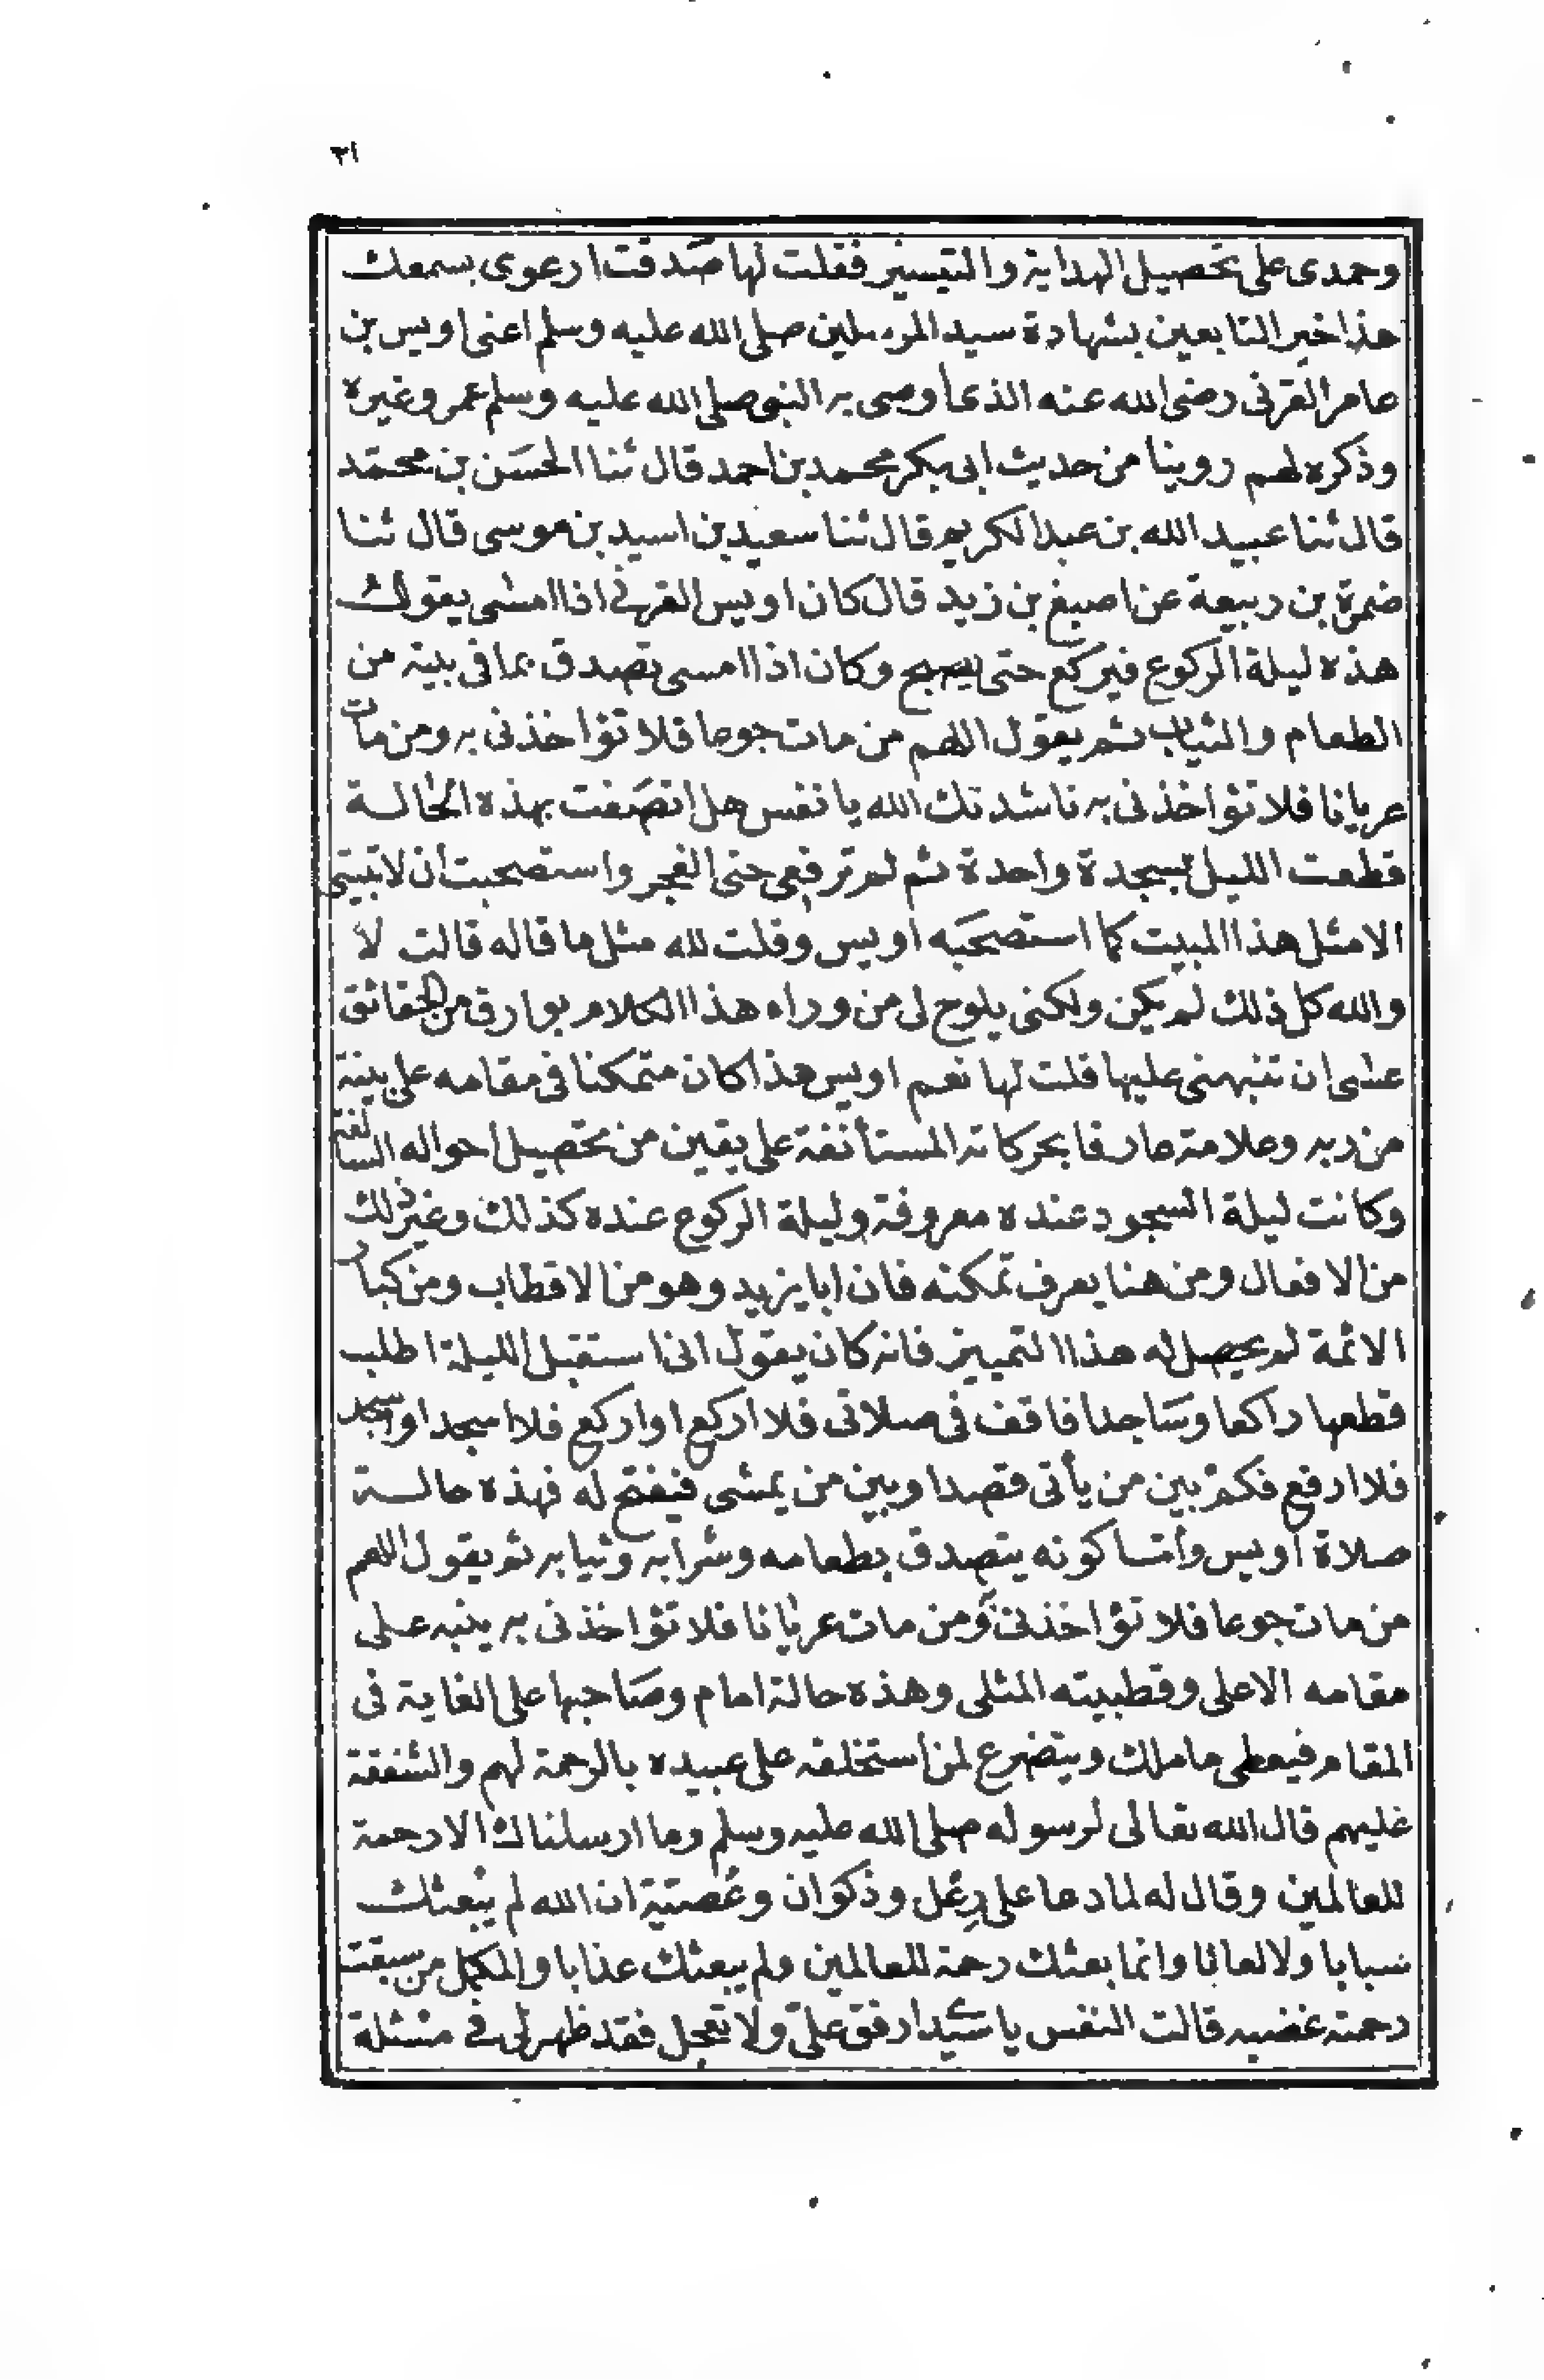 ٣١
وحمدى على تحصيل الهداية والتيسير فقلت لها صدقت ارعوى بسمعك
هذا خير التابعين بشهادة سيد المرسلين صلى الله عليه وسلم اعنى اويس بن
عامر القرنى رضى الله عنه الذى أوصى به النبى صلى الله عليه وسلم عمر وغيره
وذكره لهم روينا من حديث ابى بكر محمد بن احمد قال ثنا الحسن بن محمد
قال ثنا عبيد الله بن عبد الكريم قال ثنا سعيد بن اسيد بن موسى قال ثنا
ضمرة بن ربيعة عن اصبغ بن زيد قال كان اويس القرنى اذا امسى يقول
هذه ليلة الركوع فيركع حتى يصبح وكان اذا امسى تصدق بما فى بيته من
الطعام والثياب ثم يقول اللهم من مات جوعا فلا تؤاخذنى به ومن مات
عريانا فلا تؤاخذنى به ناشدتك الله يا نفس هل اتصفت بهذه الحالة
قطعت الليل بسجدة واحدة ثم لم ترفعى حتى الفجر واستصحبت أن لا تبيتى
الا مثل هذا المبيت كما استصحبه اويس وقلت لله مثل ما قاله قالت لا
والله كل ذلك لم يكن ولكنى يلوح لى من وراء هذا الكلام بوارق من الحقائق
عسى ان تنبهنى عليها قلت لها نعم اويس هذا كان متمكنا فى مقامه على بينة
من ربه وعلامة عارفا بحركاته المستأنفة على يقين من تحصيل احواله السالفة
وكانت ليلة السجود عنده معروفة وليلة الركوع عنده كذلك وغير ذلك
من الافعال ومن هنا يعرف تمكنه فان ابا يزيد وهو من الاقطاب ومن كبار
الائمة لم يحصل له هذا التمييز فانه كان يقول انى استقبل الليلة اطلب
قطعها راكعا وساجدا فاقف فى صلاتى فلا اركع او اركع فلا اسجد او اسجد
فلا ارفع فكم بين من يأتى قصدا وبين من يمشى فيفتح له فهذه حالة
صلاة أويس وأما كونه يتصدق بطعامه وشرابه وثيابه ثم يقول اللهم
من مات جوعا فلا تؤاخذنى ومن مات عريانا فلا تؤاخذنى به ينبه على
مقامه الاعلى وقطبيته المثلى وهذه حالة امام وصاحبها على الغاية فى
المقام فيعطى ما ملك ويتضرع لمن استخلفه على عبيده بالرحمة لهم والشفقة
عليهم قال الله تعالى لرسوله صلى الله عليه وسلم وما ارسلناك الا رحمة
للعالمين وقال له لما دعا على رعل وذكوان وعصية ان الله لم يبعثك
سبابا ولا لعانا وانما بعثك رحمة للعالمين ولم يبعثك عذابا والمكمل من سبقت
رحمته غضبه قالت النفس يا سيدى ارفق على ولا تعجل فقد ظهر لى فى مسئلة